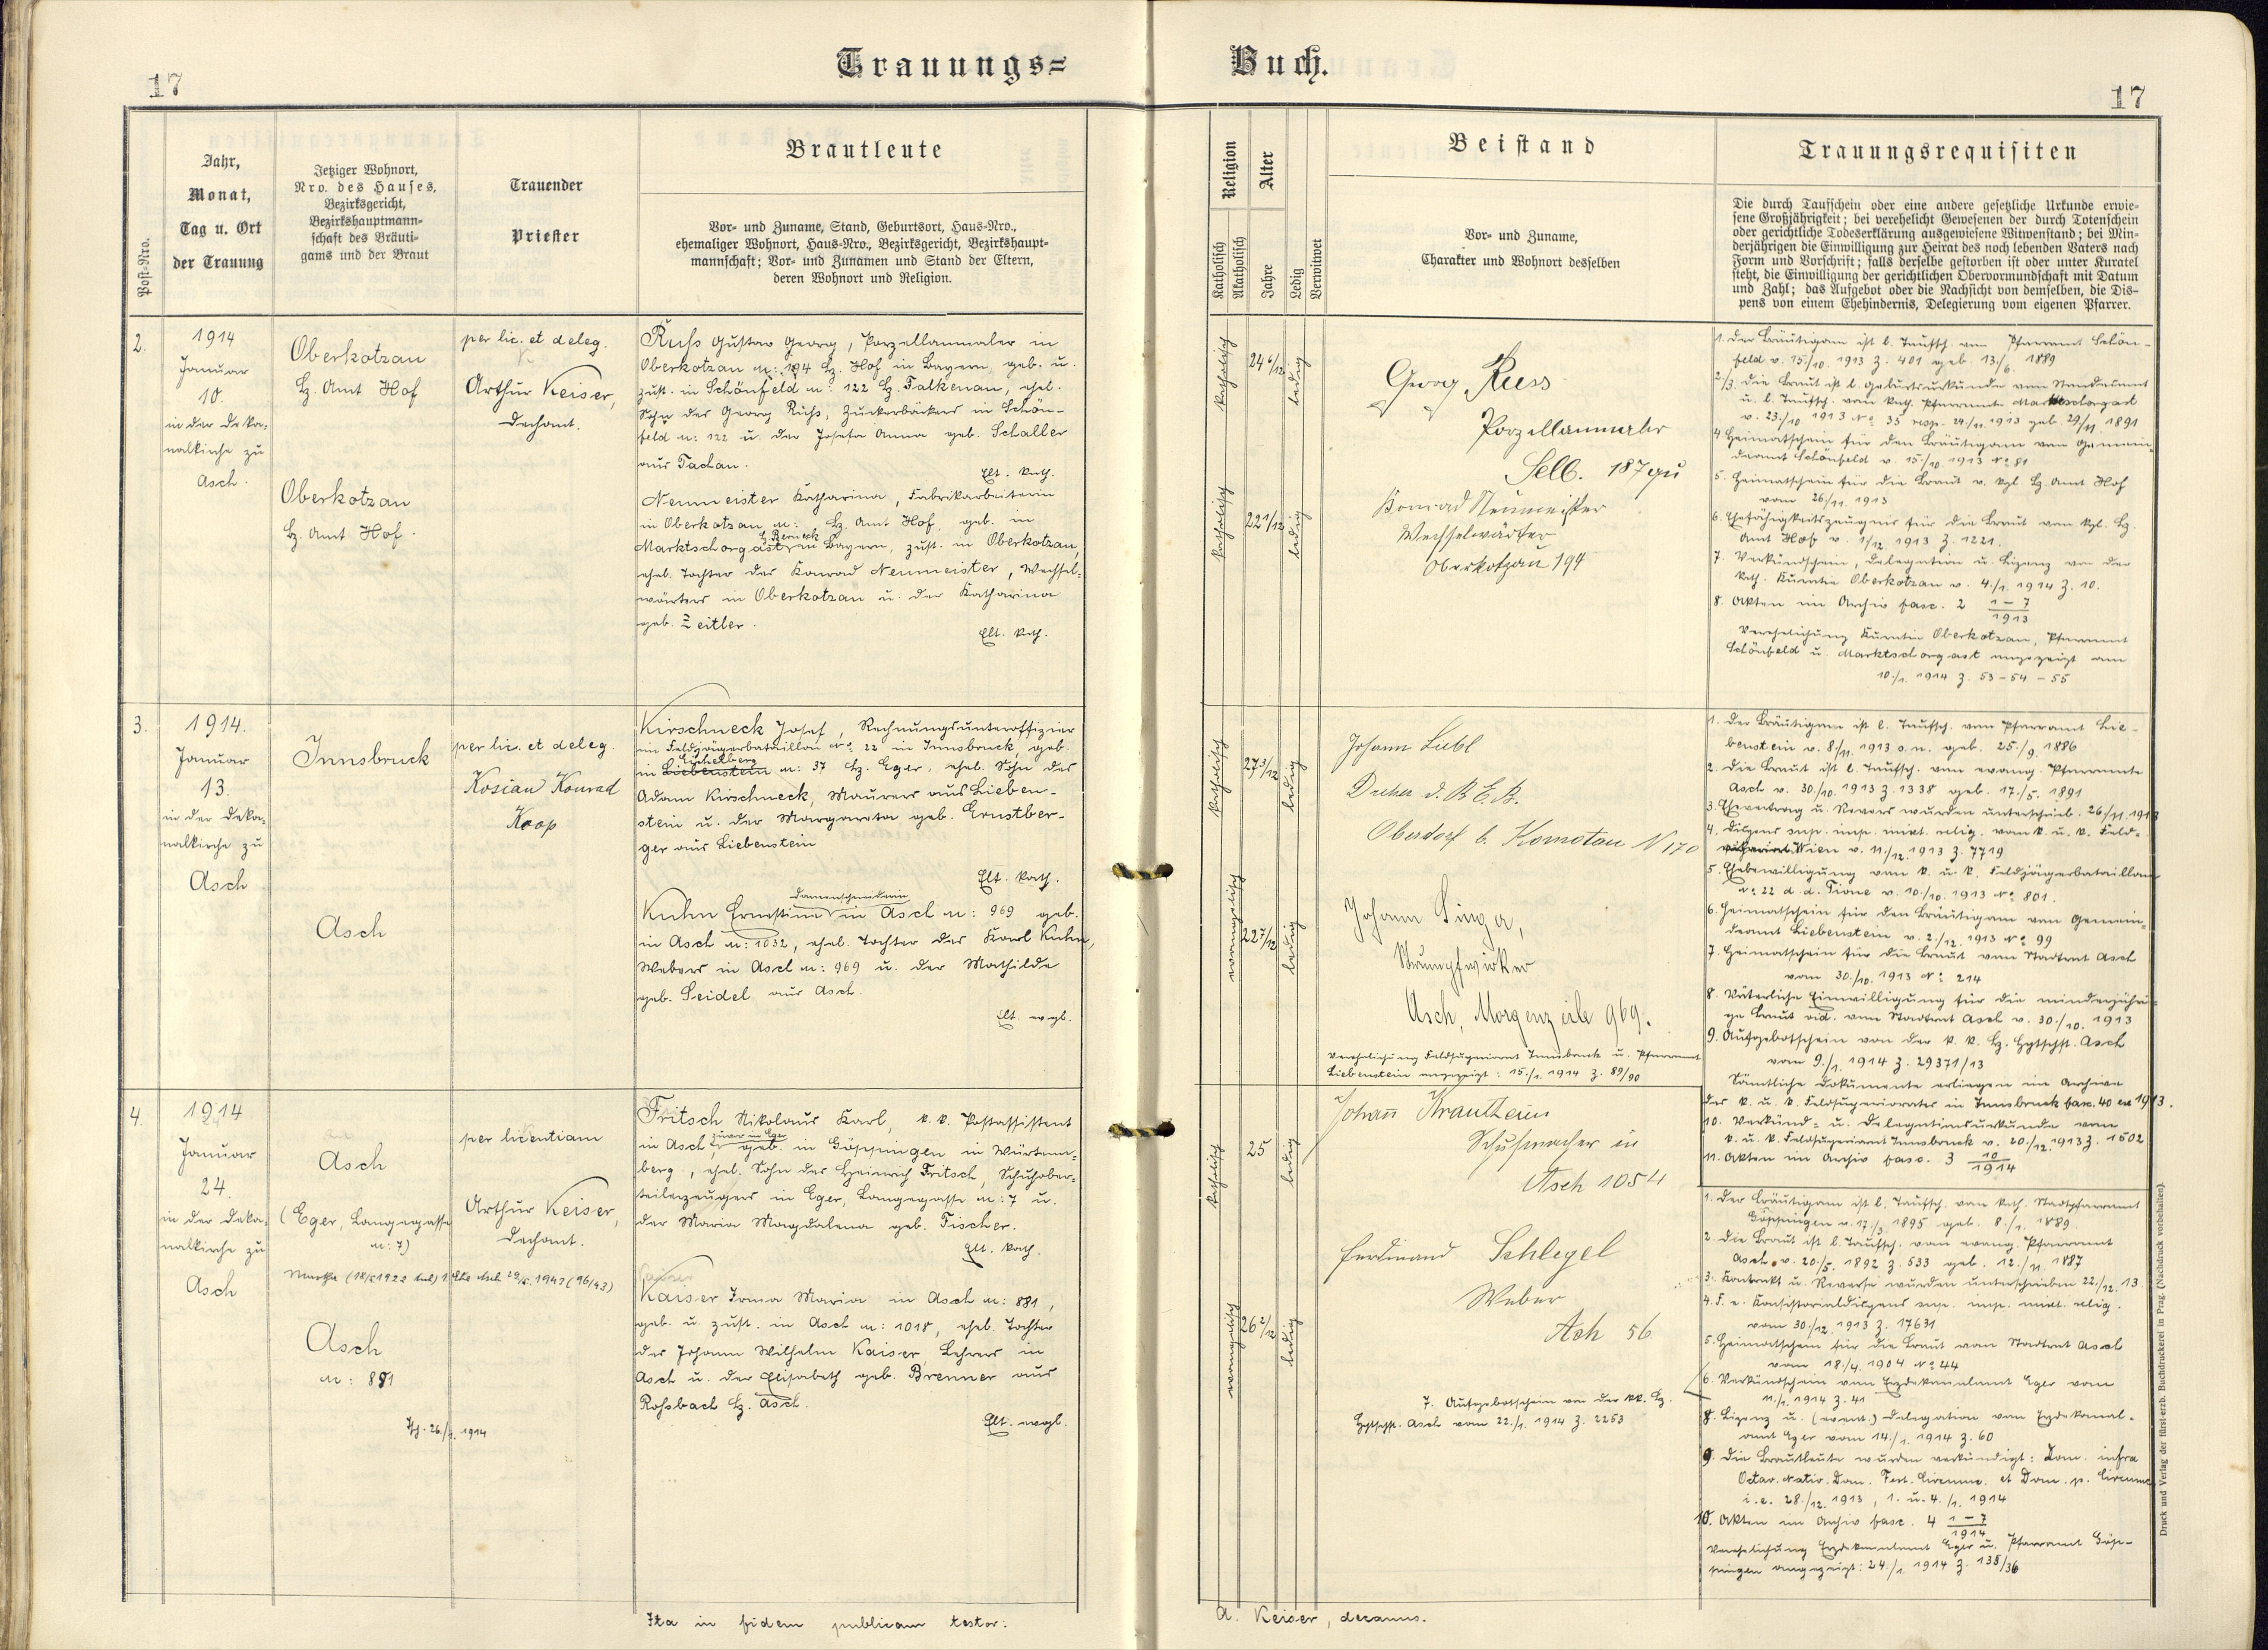 17
Trauungs=
Buch.
17
Post-Nro.
Jahr,
Monat,
Tag u. Ort
der Trauung
Jetziger Wohnort,
Nro. des Hauses,
Bezirksgericht,
Bezirkshauptmann-
schaft des Bräuti-
gams und der Braut
Trauender
Priester
Brautleute
Vor- und Zuname, Stand, Geburtsort, Haus-Nro.,
ehemaliger Wohnort, Haus-Nro., Bezirksgericht, Bezirkshaupt-
mannschaft; Vor- und Zunamen und Stand der Eltern,
deren Wohnort und Religion.
Religion
Katholisch
Akatholisch
Alter
Jahre
Ledig
Verwitwet
Beistand
Vor- und Zuname,
Charakter und Wohnort desselben
Trauungsrequisiten
Die durch Taufschein oder eine andere gesetzliche Urkunde erwie-
sene Großjährigkeit; bei verehelicht Gewesenen der durch Totenschein
oder gerichtliche Todeserklärung ausgewiesene Witwenstand; bei Min-
derjährigen die Einwilligung zur Heirat des noch lebenden Vaters nach
Form und Vorschrift; falls derselbe gestorben ist oder unter Kuratel
steht, die Einwilligung der gerichtlichen Obervormundschaft mit Datum
und Zahl; das Aufgebot oder die Nachsicht von demselben, die Dis-
pens von einem Ehehindernis, Delegierung vom eigenen Pfarrer.
2.
1914
Januar
10.
in der Deka-
nalkirche zu
Asch.
Oberkotzau
Bz. Amt Hof
Oberkotzau
Bz. Amt Hof.
per lic. et deleg.
Arthur Keiser,
Dechant.
Ruß Gustav Georg, Porzellanmaler in
Oberkotzau n: 194 Bz. Hof in Bayern, geb. u.
zust. in Schönfeld n: 122 Bz. Falkenau, ehel.
Sohn des Georg Ruß, Zuckerbäckers in Schön-
feld n: 122 u. der Josefa Anna geb. Schaller
aus Tachau.
Elt. kath.
Neumeister Katharina, Fabrikarbeiterin
in Oberkotzau n: Bz. Amt Hof, geb. in
Bz. Berneck
Marktschorgast in Bayern, zust. in Oberkotzau,
ehel. Tochter des Konrad Neumeister, Wechsel-
wärters in Oberkotzau u. der Katharina
geb. Zeitler.
Elt. kath.
katholisch
24 6/12
ledig
katholisch
22 1/12
ledig
Georg Ruess
Porzellanmaler
Selb. 187
Konrad Neumeister
Wechselwärter
Oberkotzau 194
1. Der Bräutigam ist l. Taufsch. vom Pfarramt Schön-
feld v. 15./10. 1913 Z. 401 geb. 13./6. 1889
2./3. Die Braut ist l. Geburtsurkunde vom Standesamt
u. l. Taufsch. vom kath. Pfarramte Marktschorgast
v. 23./10 1913 No 35 resp. 24./11. 1913 geb. 29/11 1891
4 Heimatschein für den Bräutigam vom Gemein-
deamt Schönfeld v. 15./10. 1913 No 81
5. Heimatschein für die Braut v. kgl. Bz. Amt Hof
vom 26./11. 1913
6. Ehefähigkeitszeugnis für die Braut vom kgl. Bz.
Amt Hof v. 1/12. 1913 Z. 1221.
7. Verkündschein, Delegation u. Lizenz von der
kath. Kuratie Oberkotzau v. 4./1. 1914 Z. 10.
8. Akten im Archiv fasc. 2 1-7/1913
Verehelichung Kuratie Oberkotzau, Pfarramt
Schönfeld u. Marktschorgast angezeigt am
10./1. 1914 Z. 53-54-55
3.
1914.
Januar
13.
in der Deka-
nalkirche zu
Asch
Innsbruck
Asch
per lic. et deleg.
Kosian Konrad
Koop
Kirschneck Josef, Rechnungsunteroffizier
im Feldjägerbataillon No 22 in Innsbruck, geb.
Eichelberg
in Liebenstein n: 37 Bz. Eger, ehel. Sohn des
Adam Kirschneck, Maurers aus Lieben-
stein u. der Margareta geb. Ernstber-
ger aus Liebenstein
Elt. kath.
Damenschneiderin
Kuhn Ernestina in Asch n: 969 geb.
in Asch n: 1032, ehel. Tochter des Karl Kuhn,
Webers in Asch n: 969 u. der Mathilde
geb. Seidel aus Asch.
Elt. evgl.
katholisch
27 3/12
ledig
evangelisch
22 7/12
ledig
Johann Liebl
Dreher d. B.E.B.
Oberdorf b. Komotau N 170
Johann Singer,
Strumpfwirker
Asch, Morgenzeile 969.
Verehelichung Feldsuperiorat Innsbruck u. Pfarramt
Liebenstein angezeigt: 15./1. 1914 Z. 89/90
1. Der Bräutigam ist l. Taufsch. vom Pfarramt Lie-
benstein v. 8./11. 1913 o.n. geb. 25./9. 1886
2. Die Braut ist l. Taufsch. vom evang. Pfarramte
Asch v. 30./10. 1913 Z. 1338 geb. 17./5. 1891
3. Ehevertrag u. Revers wurden unterschrieb. 26/11. 1913
4. Dispens sup. imp. mixt. relig. vom k. u. k. Feld-
vikariat Wien v. 11./12. 1913 Z. 7719
5. Ehebewilligung vom k. u. k. Feldjägerbataillon
No 22 d. d. Tione v. 10./10. 1913 No 801.
6. Heimatschein für den Bräutigam vom Gemein-
deamt Liebenstein v. 2./12. 1913 No 99
7. Heimatschein für die Braut vom Stadtrat Asch
vom 30./10. 1913 No 214
8. Väterliche Einwilligung für die minderjähri-
ge Braut vid. vom Stadtrat Asch v. 30./10. 1913
9. Aufgebotschein von der k. k. Bz. Hptschft. Asch
vom 9./1. 1914 Z. 29371/13
Sämtliche Dokumente erliegen im Archive
des k. u. k. Feldsuperiorates in Innsbruck fasc. 40 ex 1913.
10. Verkünd- u. Delegationsurkunde vom
k. u. k. Feldsuperiorat Innsbruck v. 20./12. 1913 Z. 1602
11. Akten im Archiv fasc. 3 10/1914
4.
1914
Januar
24.
in der Deka-
nalkirche zu
Asch
Asch
(Eger, Langegasse
n: 7)
Asch
n: 881
26./1. 1914
per licentiam
Arthur Keiser,
Dechant.
Fritsch Nikolaus Karl, k. k. Postassistent
zust. in Eger
in Asch, geb. in Göppingen in Württem-
berg, ehel. Sohn des Heinrich Fritsch, Schuhober-
teilerzeugers in Eger, Langegasse n: 7 u.
der Maria Magdalena geb. Fischer.
Elt. kath.
Kaiser Irma Maria in Asch n: 881,
geb. u. zust. in Asch n: 1018, ehel. Tochter
des Johann Wilhelm Kaiser, Lehrers in
Asch u. der Elisabeth geb. Brenner aus
Roßbach Bz. Asch.
Elt. evgl.
katholisch
25
ledig
evangelisch
26 2/12
ledig
Johann Krautheim
Schuhmacher in
Asch 1054
Ferdinand Schlegel
Weber
Asch 56
7. Aufgebotschein von der kk. Bz.
Hptschft. Asch vom 22./1. 1914 Z. 2253
1. Der Bräutigam ist l. Taufsch. vom kath. Stadtpfarramt
Göppingen v. 17./3. 1895 geb. 8./1. 1889.
2. Die Braut ist l. Taufsch. vom evang. Pfarramt
Asch v. 20./5. 1892 Z. 533 geb. 12./11. 1887
3. Kontrakt u. Reverse wurden unterschrieben 22./12. 13.
4. F. e. Konsistorialdispens sup. imp. mixt. relig.
vom 30./12. 1913 Z. 17631
5. Heimatschein für die Braut vom Stadtrat Asch
vom 18./4. 1904 No 44
6. Verkündschein vom Erzdekanalamt Eger vom
11./1. 1914 Z. 41
8. Lizenz u. (event.) Delegation vom Erzdekanal-
amt Eger vom 14./1. 1914 Z. 60
9. Die Brautleute wurden verkündigt: Dom. infra
Octav. Nativ. Dom. Fest. Circumc. et Dom. p. Circumc.
i. e. 28./12. 1913, 1. u. 4. /1. 1914
10. Akten im Archiv fasc. 4 1-7/1914
Verehelichung Erzdekanalamt Eger u. Pfarramt Göp-
pingen angezeigt: 24./1. 1914 Z. 135/36
Ita in fidem publicam testor:
A. Keiser, decanus.
Druck und Verlag der fürst-erzb. Buchdruckerei in Prag. (Nachdruck vorbehalten).